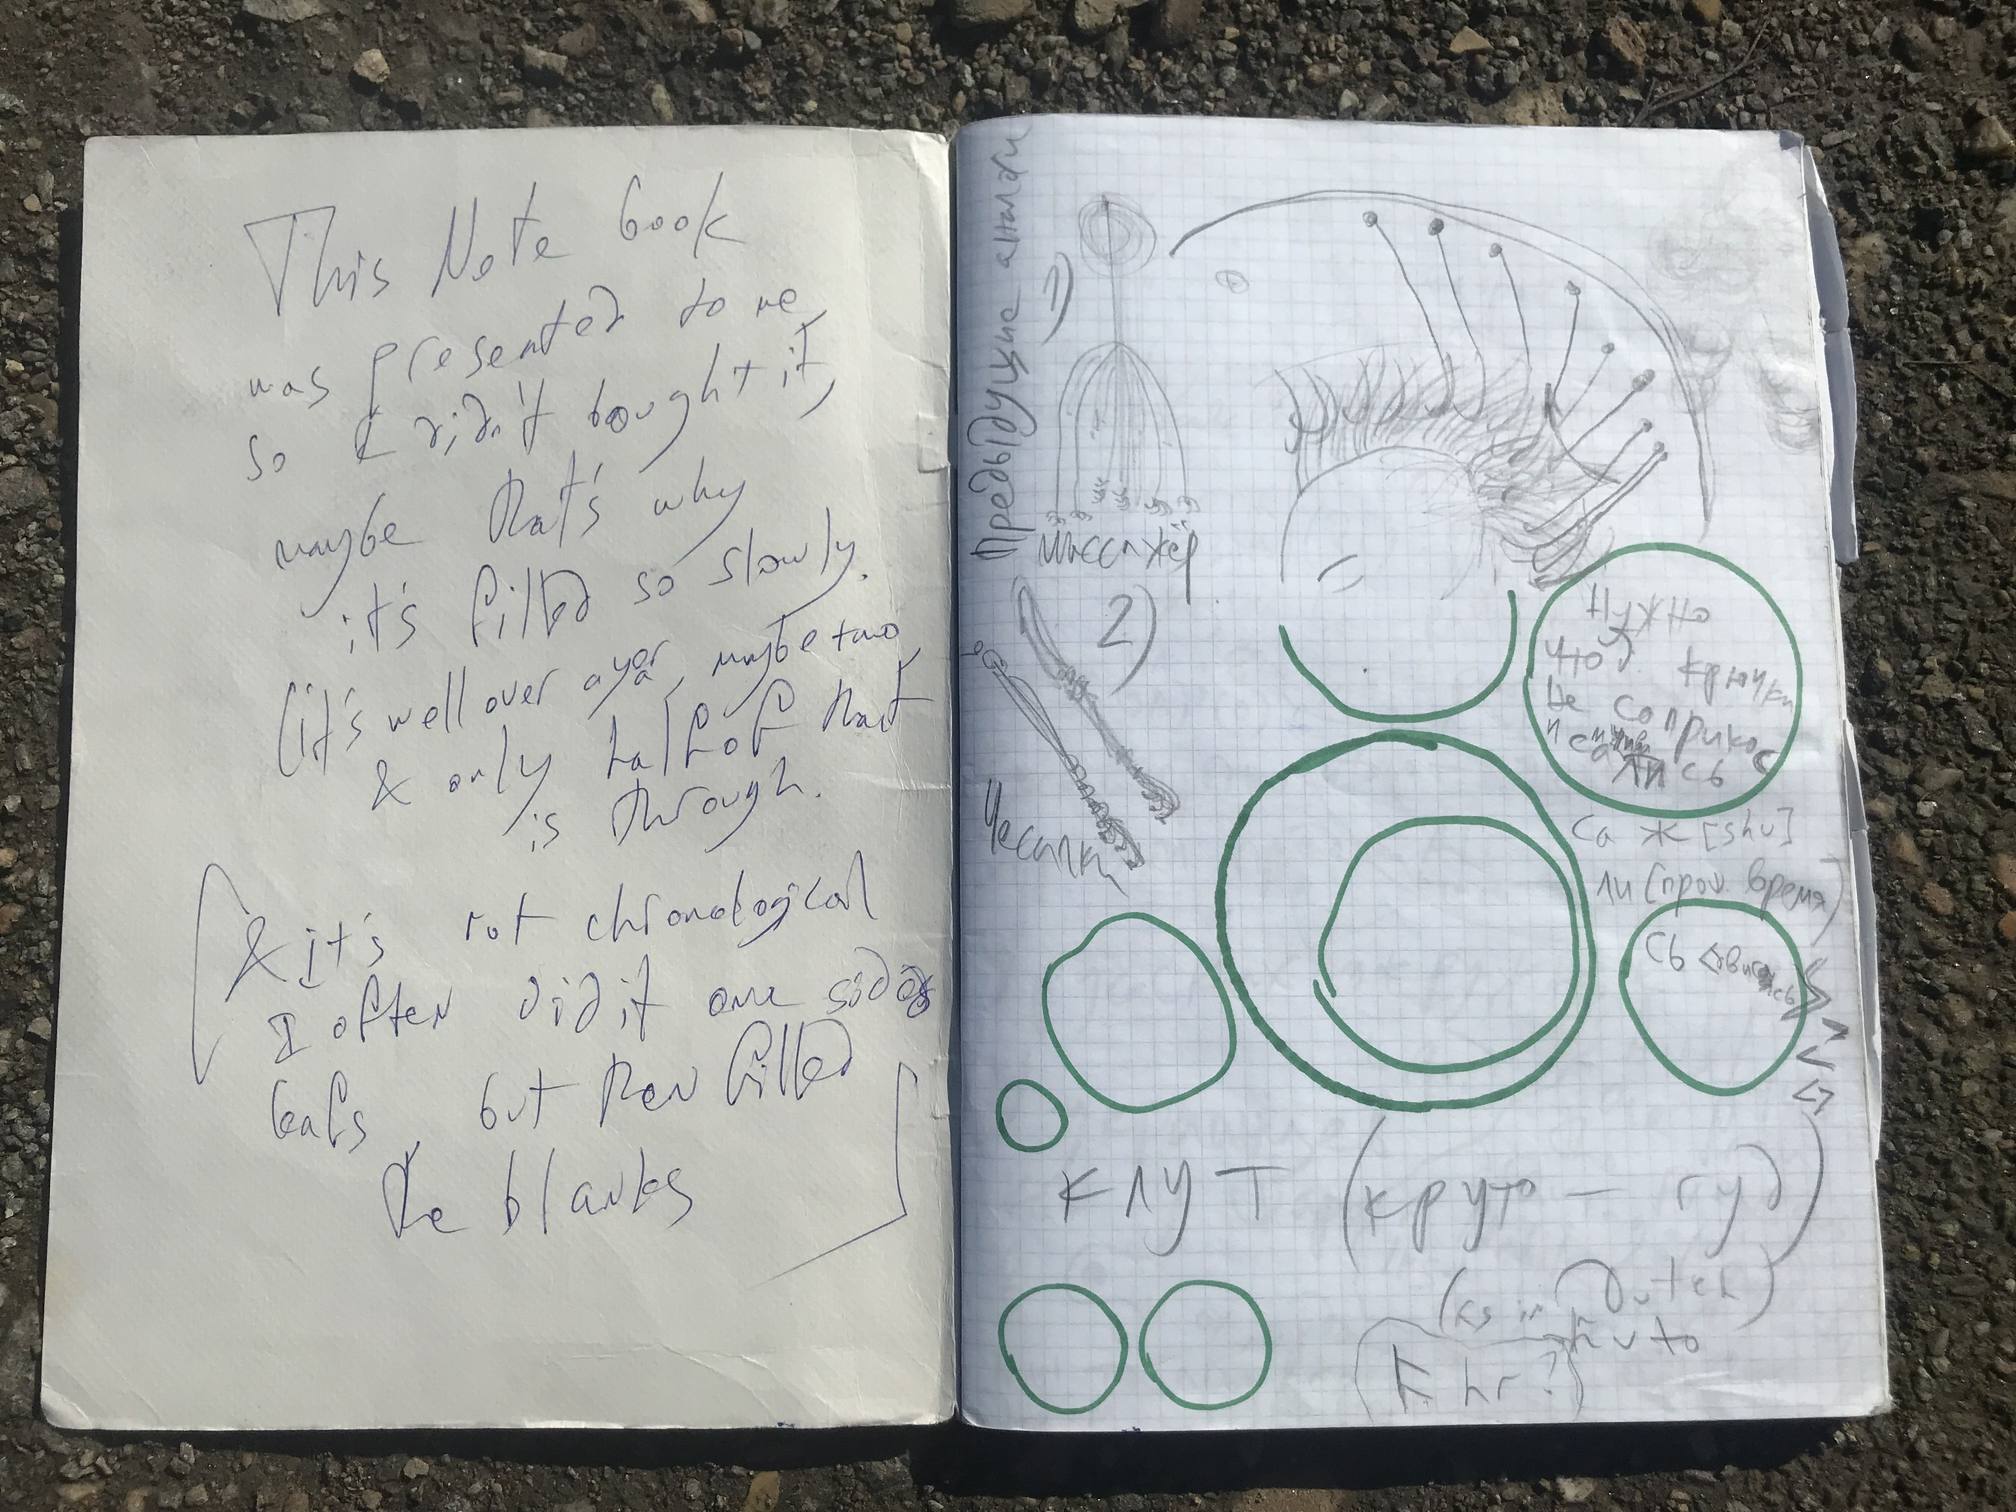 This Note book
was presented to me,
so I didn't bought it,
maybe that's why
it's filled so slowly.
(it's well over a year, maybe two
& only half of that
is through.
& it's not chronological
I often did it one sided
leafs, but then filled
the blanks
Предыдущие аналоги
1)
массажёр
2)
Чесалки
Нужно
чтоб крючки
не соприкос
и
сались
са ж [shu]
ли (прош. время)
сь
клут (круто — гуд)
(as in Dutch)
khuto
khr?